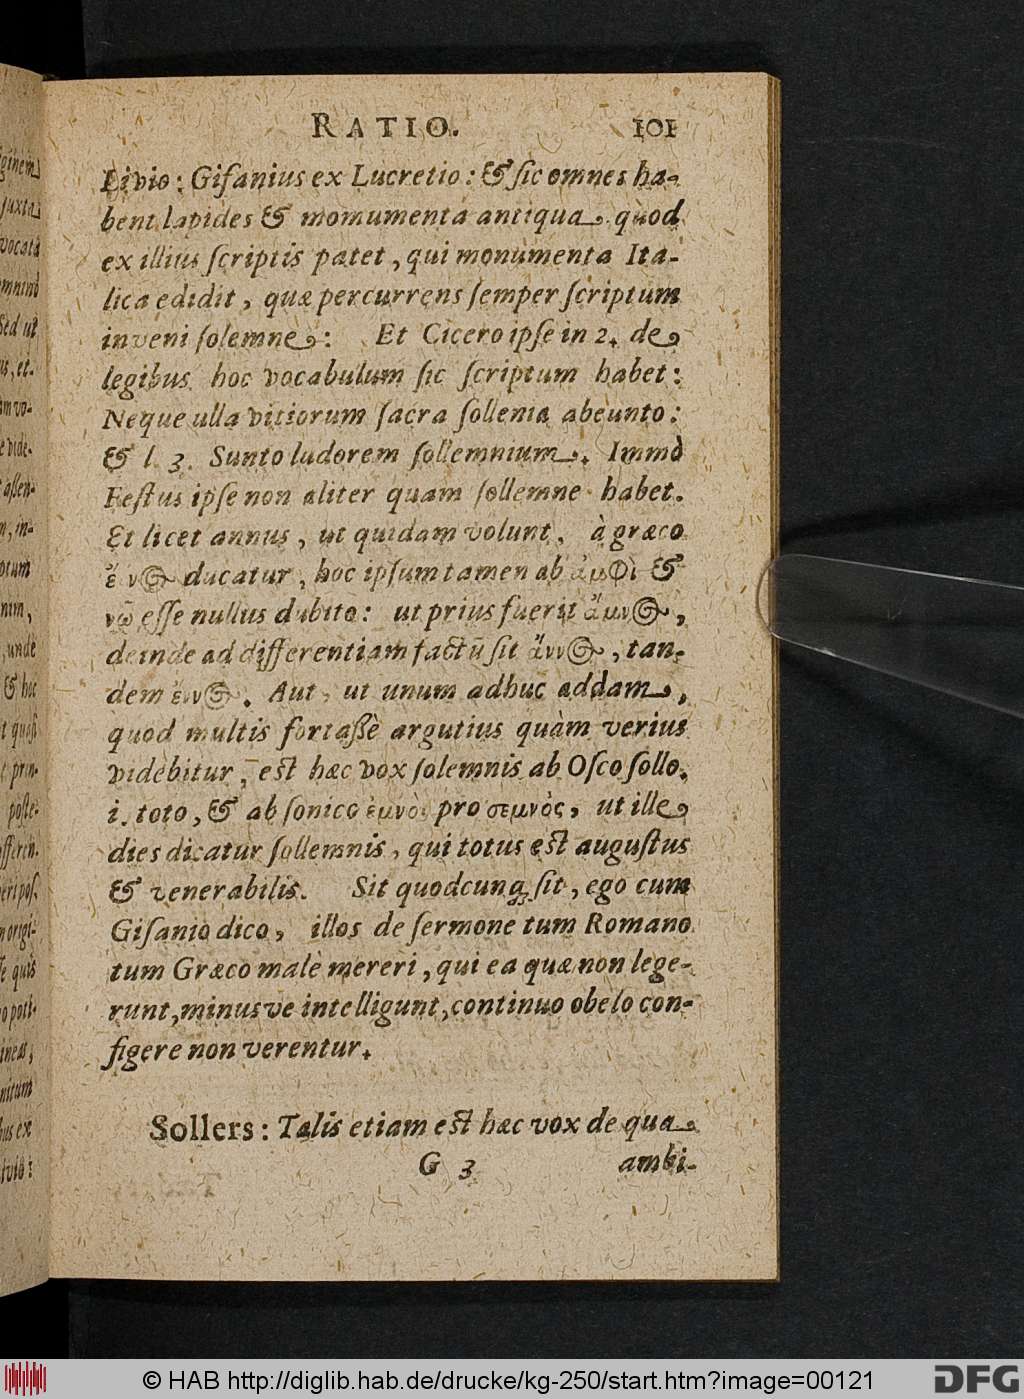 RATIO. 101
Livio: Gifanius ex Lucretio: & ſic omnes ha-
bent lapides & momumenta antiqua. quòd
ex illius ſcriptis patet, qui monumenta Ita-
lica edidit, quæ percurrens ſemper ſcriptum
inveni ſolemne: Et Cicero ipſe in 2. de
legibus hoc vocabulum ſic ſcriptum habet:
Neque ulla vitiorum ſacra ſollenia abeunto:
& l. 3. Sunto ludorem ſollemnium. Immò
Feſtus ipſe non aliter quam ſollemne habet.
Et licet annus, ut quidam volunt, à græco
ἔνος ducatur, hoc ipſum tamen ab ἀμφὶ &
νῶ eſſe nullus dubito: ut prius fuerit ἄμνος,
deinde ad differentiam factū ſit ἄννος, tan-
dem ἐνος. Aut, ut unum adhuc addam,
quod multis fortaßè argutius quàm verius
videbitur, eſt hæc vox ſolemnis ab Oſco ſollo.
i. toto, & ab ſonico ἑμνὸς pro σεμνὸς, ut ille
dies dicatur ſollemnis, qui totus eſt auguſtus
& venerabilis. Sit quodcunq; ſit, ego cum
Giſanio dico, illos de ſermone tum Romano
tum Græco malè mereri, qui ea quæ non lege-
runt, minusve intelligunt, continuo obelo con-
figere non verentur.
Sollers: Talis etiam eſt hæc vox de qua
G 3 ambi-
© HAB http://diglib.hab.de/drucke/kg-250/start.htm?image=00121
DFG